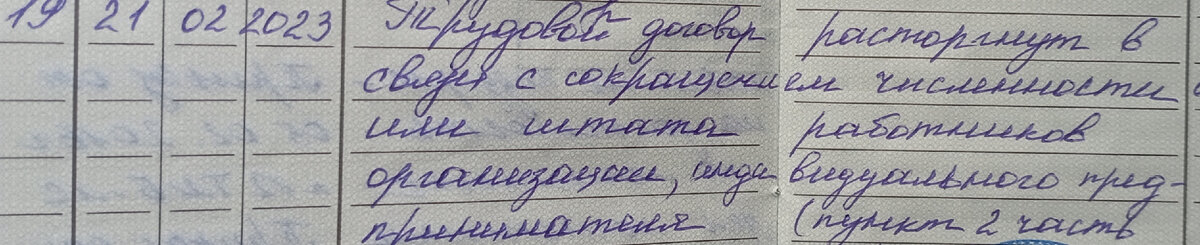 19 21 02 2023 Трудовой договор расторгнут в
связи с сокращением численности
или штата работников
организации, индивидуального пред-
принимателя (пункт 2 часть